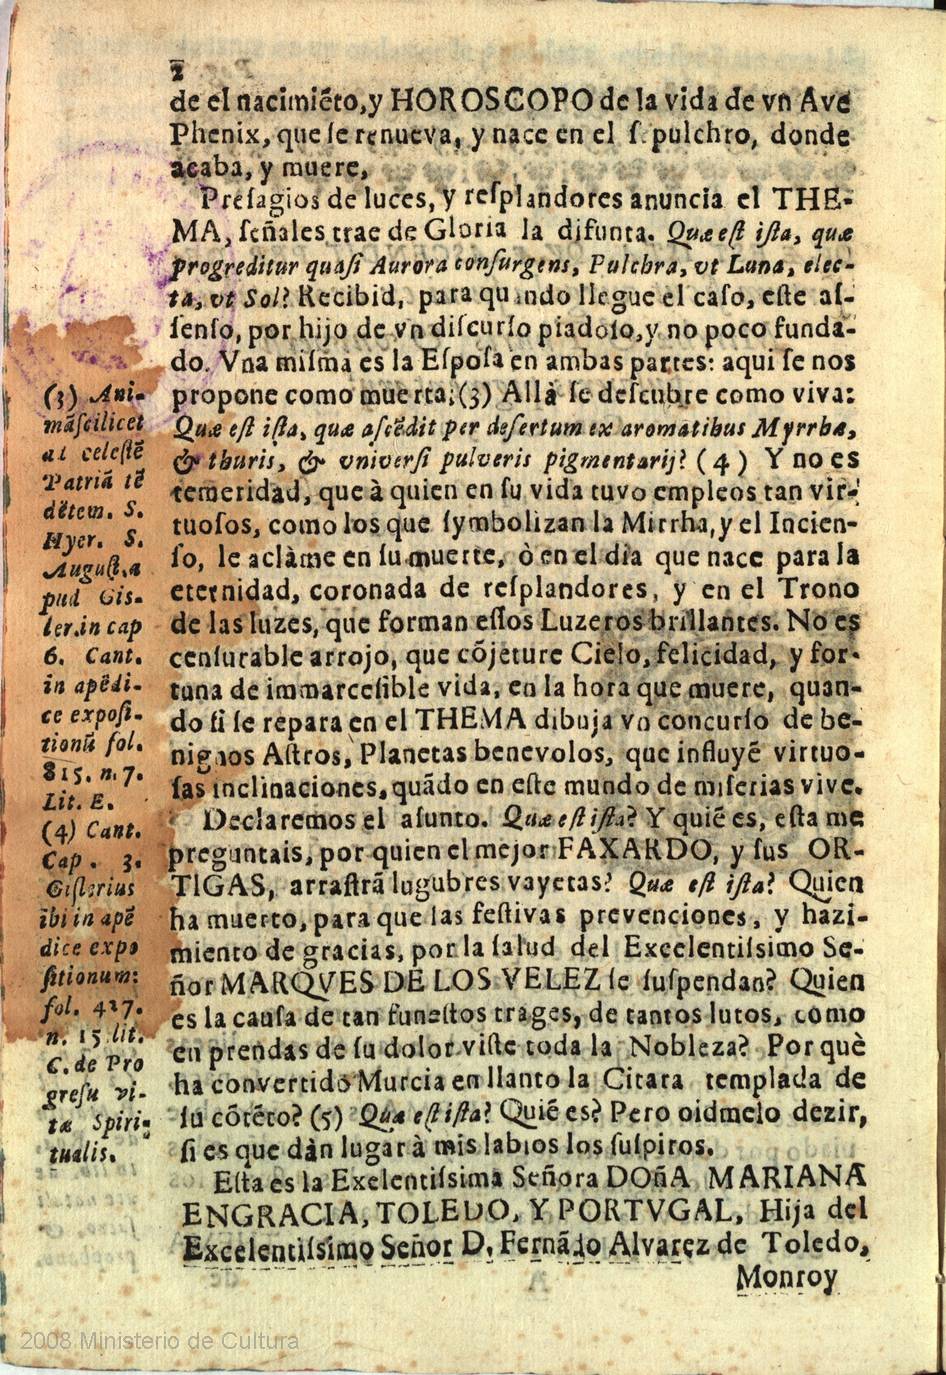 2
de el nacimiẽto,y HOROSCOPO de la vida de vn Ave
Phenix, que ſe renueva, y nace en el ſepulchro, donde
acaba, y muere,
Preſagios de luces, y reſplandores anuncia el THE-
MA, ſeñales trae de Gloria la difunta. Quæ eſt iſta, quæ
progreditur quaſi Aurora conſurgens, Pulchra, vt Luna, elec-
ta, vt Sol? Recibid, para quando llegue el caſo, eſte aſ-
ſenſo, por hijo de vn diſcurſo piadoſo,y no poco funda-
do. Vna miſma es la Eſpoſa en ambas partes: aqui ſe nos
propone como muerta;(3) Allà ſe deſcubre como viva:
Quæ eſt iſta, quæ aſcẽdit per deſertum ex aromatibus Myrrhæ,
& thuris, & vniverſi pulveris pigmentarij? (4) Y no es
temeridad, que à quien en ſu vida tuvo empleos tan vir-
tuoſos, como los que ſymbolizan la Mirrha,y el Incien-
ſo, le aclàme en ſu muerte, ò en el dia que nace para la
eternidad, coronada de reſplandores, y en el Trono
de las luzes, que forman eſſos Luzeros brillantes. No es
cenſurable arrojo, que cõjeture Cielo, felicidad, y for-
tuna de immarceſible vida, en la hora que muere, quan-
do ſi ſe repara en el THEMA dibuja vn concurſo de be-
nignos Aſtros, Planetas benevolos, que influyẽ virtuo-
ſas inclinaciones, quãdo en eſte mundo de miſerias vive.
Declaremos el aſunto. Quæ eſt iſta? Y quiẽ es, eſta me
preguntais, por quien el mejor FAXARDO, y ſus OR-
TIGAS, arraſtrã lugubres vayetas? Quæ eſt iſta? Quien
ha muerto, para que las feſtivas prevenciones, y hazi-
miento de gracias, por la ſalud del Excelentiſsimo Se-
ñor MARQVES DE LOS VELEZ ſe ſuſpendan? Quien
es la cauſa de tan funeſtos trages, de tantos lutos, como
en prendas de ſu dolor viſte toda la Nobleza? Por què
ha convertido Murcia en llanto la Citara templada de
ſu cõtẽto? (5) Quæ eſt iſta? Quiẽ es? Pero oidmelo dezir,
ſi es que dàn lugar à mis labios los ſuſpiros.
Eſta es la Exelentiſsima Señora DOñA MARIANA
ENGRACIA, TOLEDO, Y PORTVGAL, Hija del
Excelentiſsimo Señor D. Fernãdo Alvarez de Toledo,
Monroy
(3) Ani-
mã ſcilicet
ad celeſtẽ
Patriã tẽ
dẽtem. S.
Hyer. S.
Auguſt.a
pud Giſ-
ler.in cap
6. Cant.
in apẽdi-
ce expoſi-
tionũ fol.
815. n. 7.
Lit. E.
(4) Cant.
Cap. 3.
Giſlerius
ibi in apẽ
dice expo
ſitionum:
fol. 427.
n. 15 lit.
C. de Pro
greſu vi-
tæ Spiri-
tualis.
2008 Ministerio de Cultura